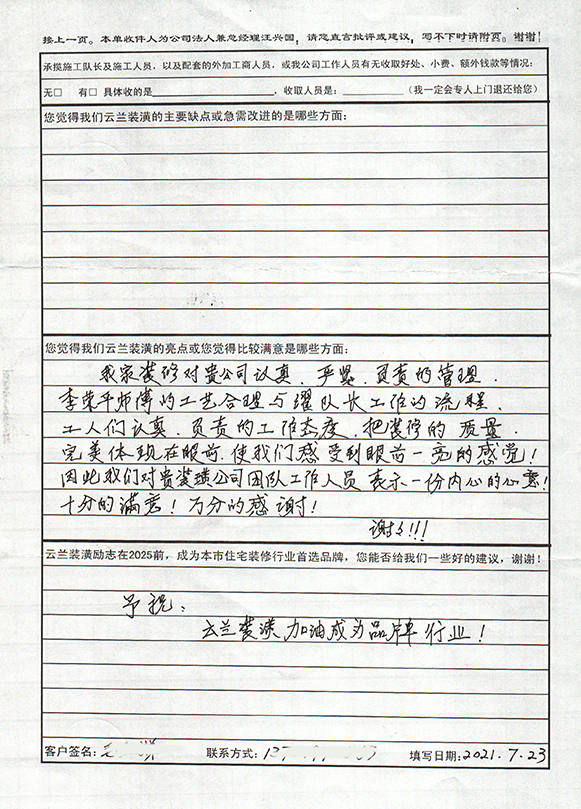 接上一页。本单收件人为公司法人兼总经理汪兴国，请您直言批评或建议，写不下时请附页。谢谢！
承揽施工队长及施工人员，以及配套的外加工商人员，或我公司工作人员有无收取好处、小费、额外钱款等情况：
无□ 有□ 具体收的是 ，收取人员是： （我一定会专人上门退还给您）
您觉得我们云兰装潢的主要缺点或急需改进的是哪些方面：
您觉得我们云兰装潢的亮点或您觉得比较满意是哪些方面：
我家装修对贵公司认真、严紧、负责的管理、
李荣平师傅的工艺合理与 队长工作的流程、
工人们认真、负责的工作态度、把装修的质量、
完美体现在眼前、使我们感受到眼前一亮的感觉！
因此我们对贵装璜公司团队工作人员表示一份内心的心意！
十分的满意！万分的感谢！
谢谢!!!
云兰装潢励志在2025前，成为本市住宅装修行业首选品牌，您能否给我们一些好的建议，谢谢！
予祝：
云兰装潢加油成为品牌行业！
客户签名： 联系方式：13 填写日期：2021.7.23